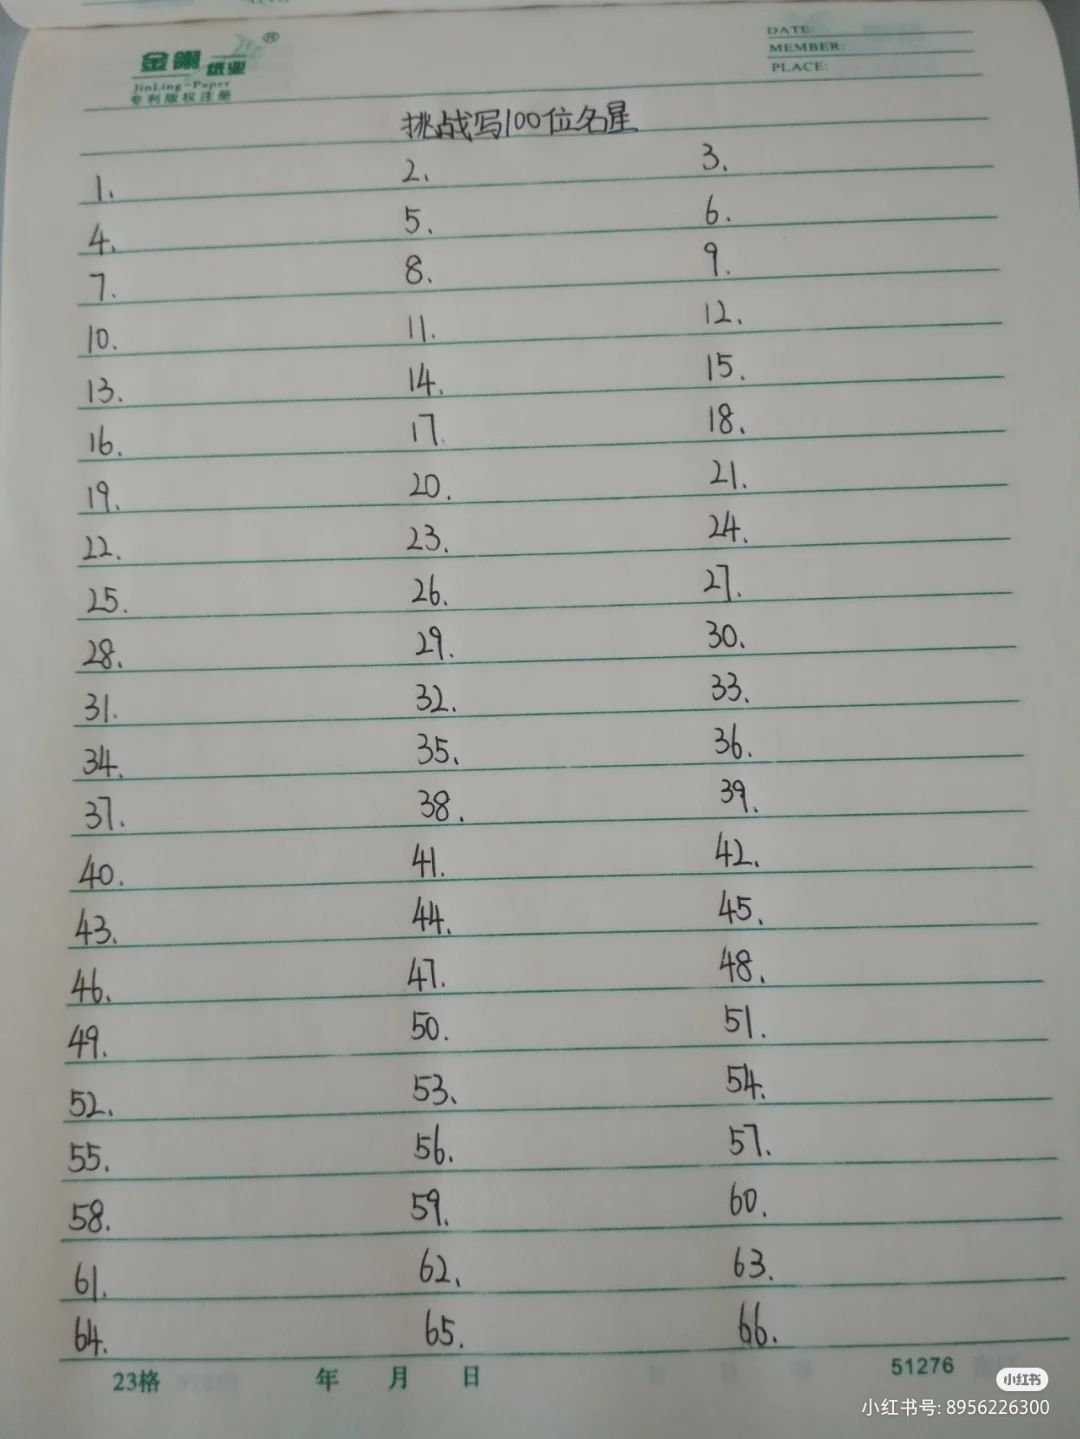 金翎纸业®
JinLing-Paper
专利版权注册
DATE:
MEMBER:
PLACE:
挑战写100位名星
1. 2. 3.
4. 5. 6.
7. 8. 9.
10. 11. 12.
13. 14. 15.
16. 17. 18.
19. 20. 21.
22. 23. 24.
25. 26. 27.
28. 29. 30.
31. 32. 33.
34. 35. 36.
37. 38. 39.
40. 41. 42.
43. 44. 45.
46. 47. 48.
49. 50. 51.
52. 53. 54.
55. 56. 57.
58. 59. 60.
61. 62. 63.
64. 65. 66.
23格 年 月 日 51276
小红书
小红书号: 8956226300